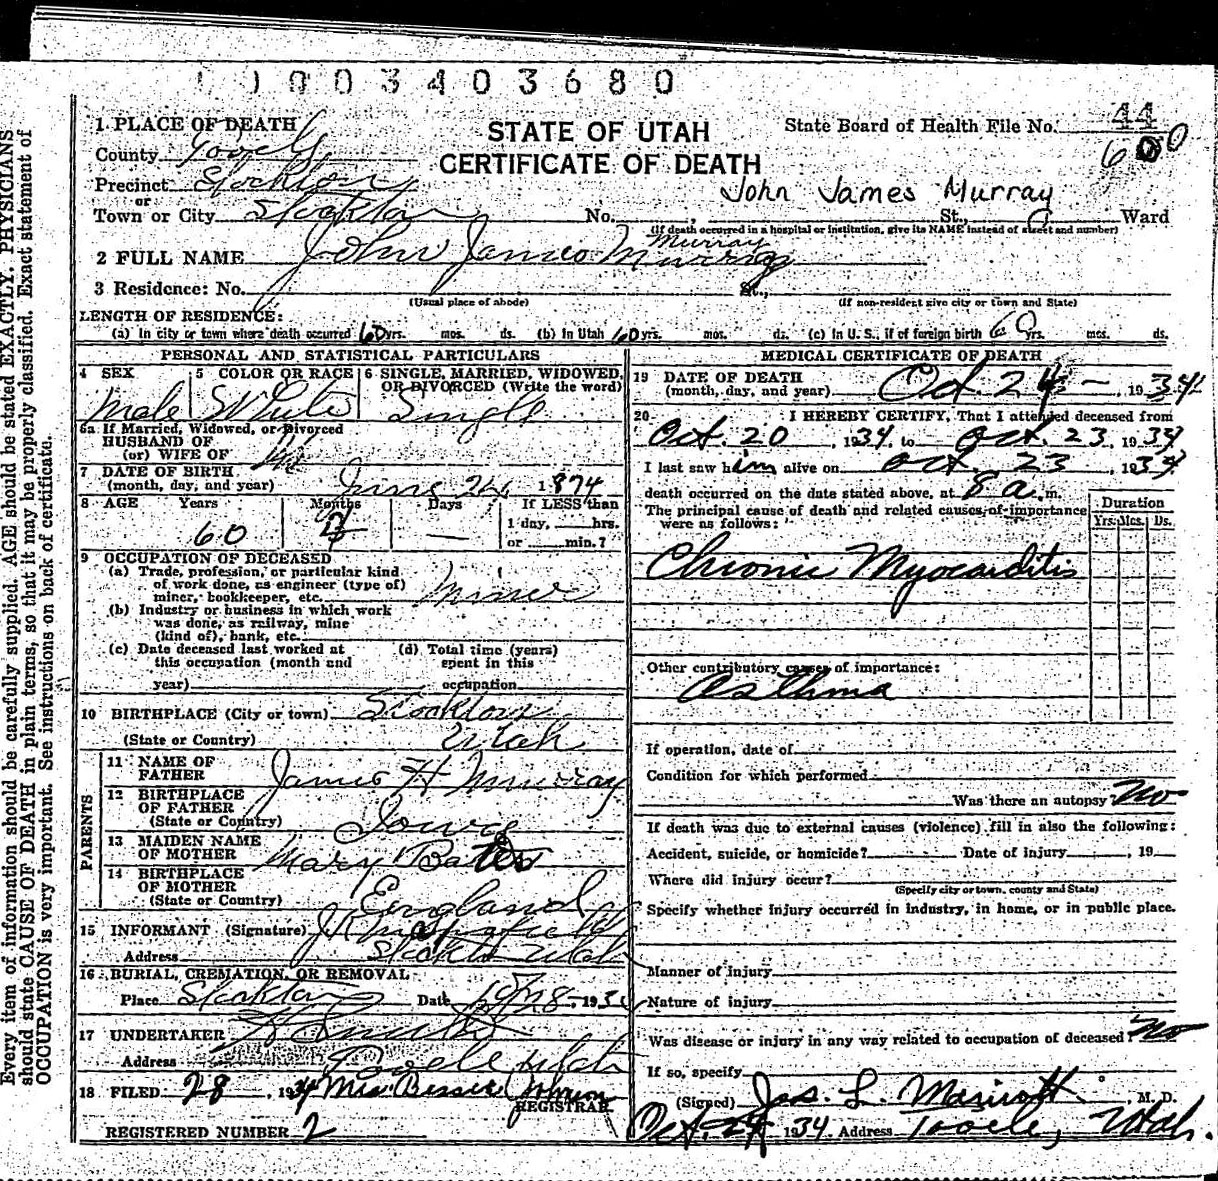 1 0 0 3 4 0 3 6 8 0
1 PLACE OF DEATH
STATE OF UTAH
CERTIFICATE OF DEATH
State Board of Health File No. 44
600
County Tooele
Precinct Stockton
or
Town or City Stockton No. , St., Ward
John James Murray
(If death occurred in a hospital or institution, give its NAME instead of street and number)
Murray
2 FULL NAME John James Murray
3 Residence: No. St.,
(Usual place of abode) (If non-resident give city or town and State)
LENGTH OF RESIDENCE:
(a) In city or town where death occurred 60 yrs. mos. ds. (b) In Utah 60 yrs. mos. ds. (c) In U. S., if of foreign birth 60 yrs. mos. ds.
PERSONAL AND STATISTICAL PARTICULARS
4 SEX 5 COLOR OR RACE 6 SINGLE, MARRIED, WIDOWED, OR DIVORCED (Write the word)
Male White Single
6a If Married, Widowed, or Divorced
HUSBAND OF
(or) WIFE OF
7 DATE OF BIRTH
(month, day, and year) June 24 1874
8 AGE Years Months Days If LESS than
60 1 day, hrs.
or min.?
9 OCCUPATION OF DECEASED
(a) Trade, profession, or particular kind
of work done, as engineer (type of)
miner, bookkeeper, etc. Miner
(b) Industry or business in which work
was done, as railway, mine
(kind of), bank, etc.
(c) Date deceased last worked at
this occupation (month and
year)
(d) Total time (years)
spent in this
occupation
10 BIRTHPLACE (City or town) Stockton
(State or Country) Utah
PARENTS
11 NAME OF
FATHER James H Murray
12 BIRTHPLACE
OF FATHER
(State or Country) Iowa
13 MAIDEN NAME
OF MOTHER Mary Bates
14 BIRTHPLACE
OF MOTHER
(State or Country) England
15 INFORMANT (Signature)
Address Stockton Utah
16 BURIAL, CREMATION, OR REMOVAL
Place Stockton Date 10/28, 193
17 UNDERTAKER
Address Tooele Utah
18 FILED 28, 1934 Mrs Bessie Johnson
REGISTRAR
REGISTERED NUMBER 2
MEDICAL CERTIFICATE OF DEATH
19 DATE OF DEATH
(month, day, and year) Oct. 24 - , 1934
20 I HEREBY CERTIFY, That I attended deceased from
Oct. 20, 1934, to Oct. 23, 1934
I last saw him alive on Oct. 23 1934
death occurred on the date stated above, at 8 a. m.
The principal cause of death and related causes of importance
were as follows:
Duration
Yrs. Mos. Ds.
Chronic Myocarditis
Other contributory causes of importance:
Asthma
If operation, date of
Condition for which performed
Was there an autopsy No
If death was due to external causes (violence) fill in also the following:
Accident, suicide, or homicide? Date of injury , 19
Where did injury occur?
(Specify city or town, county and State)
Specify whether injury occurred in industry, in home, or in public place.
Manner of injury
Nature of injury
Was disease or injury in any way related to occupation of deceased? No
If so, specify
(Signed) Jas. L. Marriott, M. D.
Oct. 24 1934. Address Tooele, Utah.
Every item of information should be carefully supplied. AGE should be stated EXACTLY. PHYSICIANS
should state CAUSE OF DEATH in plain terms, so that it may be properly classified. Exact statement of
OCCUPATION is very important. See instructions on back of certificate.